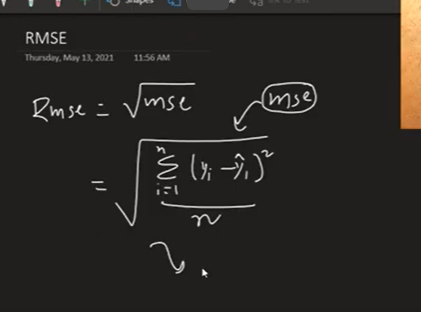 Shapes
RMSE
Thursday, May 13, 2021 11:56 AM
Rmse = √mse
mse
= √
n
Σ (yᵢ - ŷᵢ)²
i=1
n